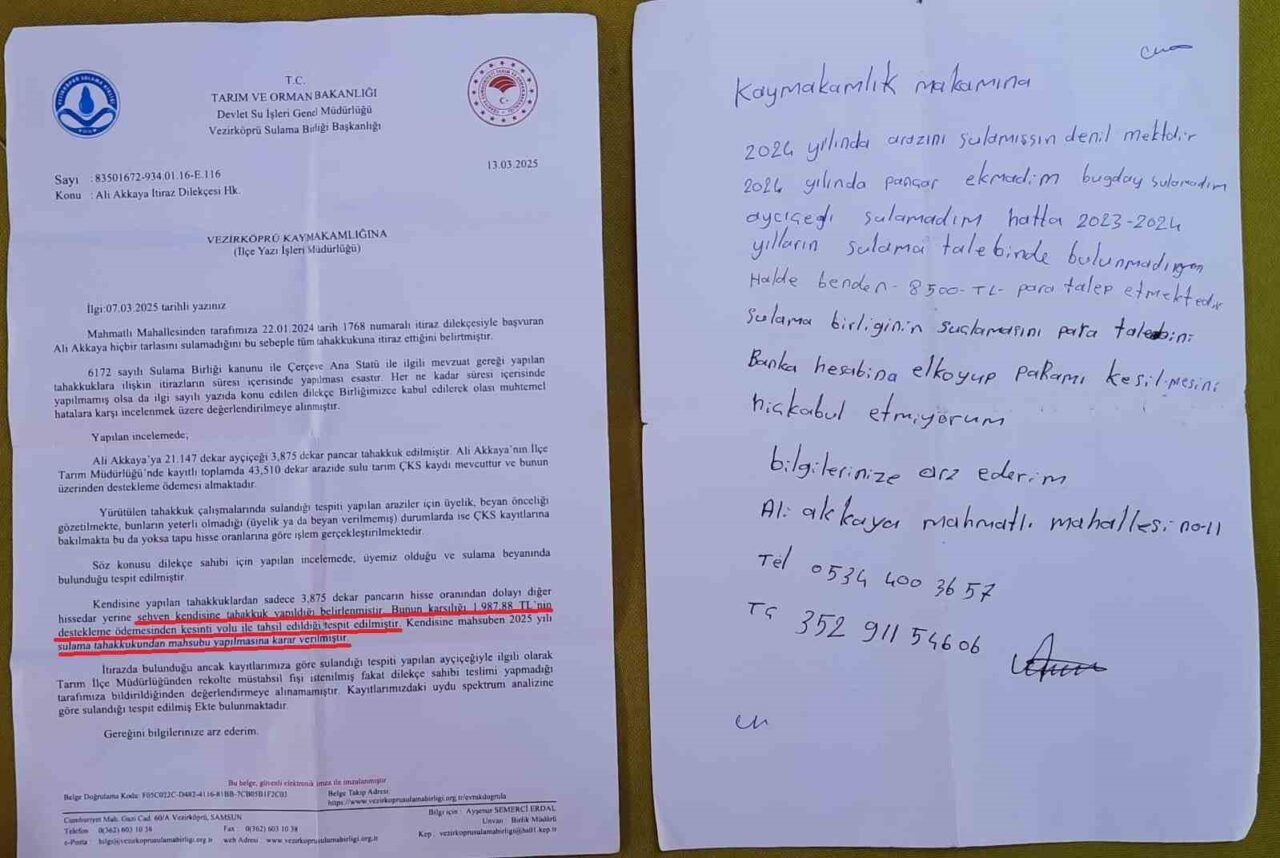 T.C.
TARIM VE ORMAN BAKANLIĞI
Devlet Su İşleri Genel Müdürlüğü
Vezirköprü Sulama Birliği Başkanlığı
13.03.2025
Sayı : 83501672-934.01.16-E.116
Konu : Ali Akkaya İtiraz Dilekçesi Hk.
VEZİRKÖPRÜ KAYMAKAMLIĞINA
(İlçe Yazı İşleri Müdürlüğü)
İlgi:07.03.2025 tarihli yazınız
Mahmatlı Mahallesinden tarafımıza 22.01.2024 tarih 1768 numaralı itiraz dilekçesiyle başvuran
Ali Akkaya hiçbir tarlasını sulamadığını bu sebeple tüm tahakkukuna itiraz ettiğini belirtmiştir.
6172 sayılı Sulama Birliği kanunu ile Çerçeve Ana Statü ile ilgili mevzuat gereği yapılan
tahakkuklara ilişkin itirazların süresi içerisinde yapılması esastır. Her ne kadar süresi içerisinde
yapılmamış olsa da ilgi sayılı yazıda konu edilen dilekçe Birliğimizce kabul edilerek olası muhtemel
hatalara karşı incelenmek üzere değerlendirilmeye alınmıştır.
Yapılan incelemede;
Ali Akkaya'ya 21.147 dekar ayçiçeği 3,875 dekar pancar tahakkuk edilmiştir. Ali Akkaya'nın İlçe
Tarım Müdürlüğü'nde kayıtlı toplamda 43,510 dekar arazide sulu tarım ÇKS kaydı mevcuttur ve bunun
üzerinden destekleme ödemesi almaktadır.
Yürütülen tahakkuk çalışmalarında sulandığı tespiti yapılan araziler için üyelik, beyan önceliği
gözetilmekte, bunların yeterli olmadığı (üyelik ya da beyan verilmemiş) durumlarda ise ÇKS kayıtlarına
bakılmakta bu da yoksa tapu hisse oranlarına göre işlem gerçekleştirilmektedir.
Söz konusu dilekçe sahibi için yapılan incelemede, üyemiz olduğu ve sulama beyanında
bulunduğu tespit edilmiştir.
Kendisine yapılan tahakkuklardan sadece 3,875 dekar pancarın hisse oranından dolayı diğer
hissedar yerine sehven kendisine tahakkuk yapıldığı belirlenmiştir. Bunun karşılığı 1.987,88 TL'nin
destekleme ödemesinden kesinti yolu ile tahsil edildiği tespit edilmiştir. Kendisine mahsuben 2025 yılı
sulama tahakkukundan mahsubu yapılmasına karar verilmiştir.
İtirazda bulunduğu ancak kayıtlarımıza göre sulandığı tespiti yapılan ayçiçeğiyle ilgili olarak
Tarım İlçe Müdürlüğünden rekolte müstahsil fişi istenilmiş fakat dilekçe sahibi teslimi yapmadığı
tarafımıza bildirildiğinden değerlendirmeye alınamamıştır. Kayıtlarımızdaki uydu spektrum analizine
göre sulandığı tespit edilmiş Ekte bulunmaktadır.
Gereğini bilgilerinize arz ederim.
Bu belge, güvenli elektronik imza ile imzalanmıştır
Belge Doğrulama Kodu: F05C022C-D482-4116-81BB-7CB05B1F2C03
Belge Takip Adresi:
https://www.vezirkoprusulamabirligi.org.tr/evrakdogrula
Cumhuriyet Mah. Gazi Cad. 60/A Vezirköprü, SAMSUN
Telefon 0(362) 603 10 38 Fax : 0(362) 603 10 38
e-Posta : bilgi@vezirkoprusulamabirligi.org.tr web Adresi : www.vezirkoprusulamabirligi.org.tr
Bilgi için : Ayşenur SEMERCİ ERDAL
Unvan : Birlik Müdürü
Kep : vezirkoprusulamabirligi@hs01.kep.tr
Kaymakamlık makamına
2024 yılında arazını sulamıssın denil mektdir
2024 yılında pancar ekmadim bugday sulamadım
aycıçegi sulamadım hatta 2023-2024
yılların sulama talebinde bulunmadım
Halde benden - 8500-TL- para talep etmektedir
sulama birliginin suçlamasını para talebini
Banka hesabına elkoyup paramı kesilmesini
hiçkabul etmiyorum
bilgilerinize arz ederim
Ali akkaya mahmatlı mahallesi no-11
Tel 0534 400 3657
TC 352 911 54606